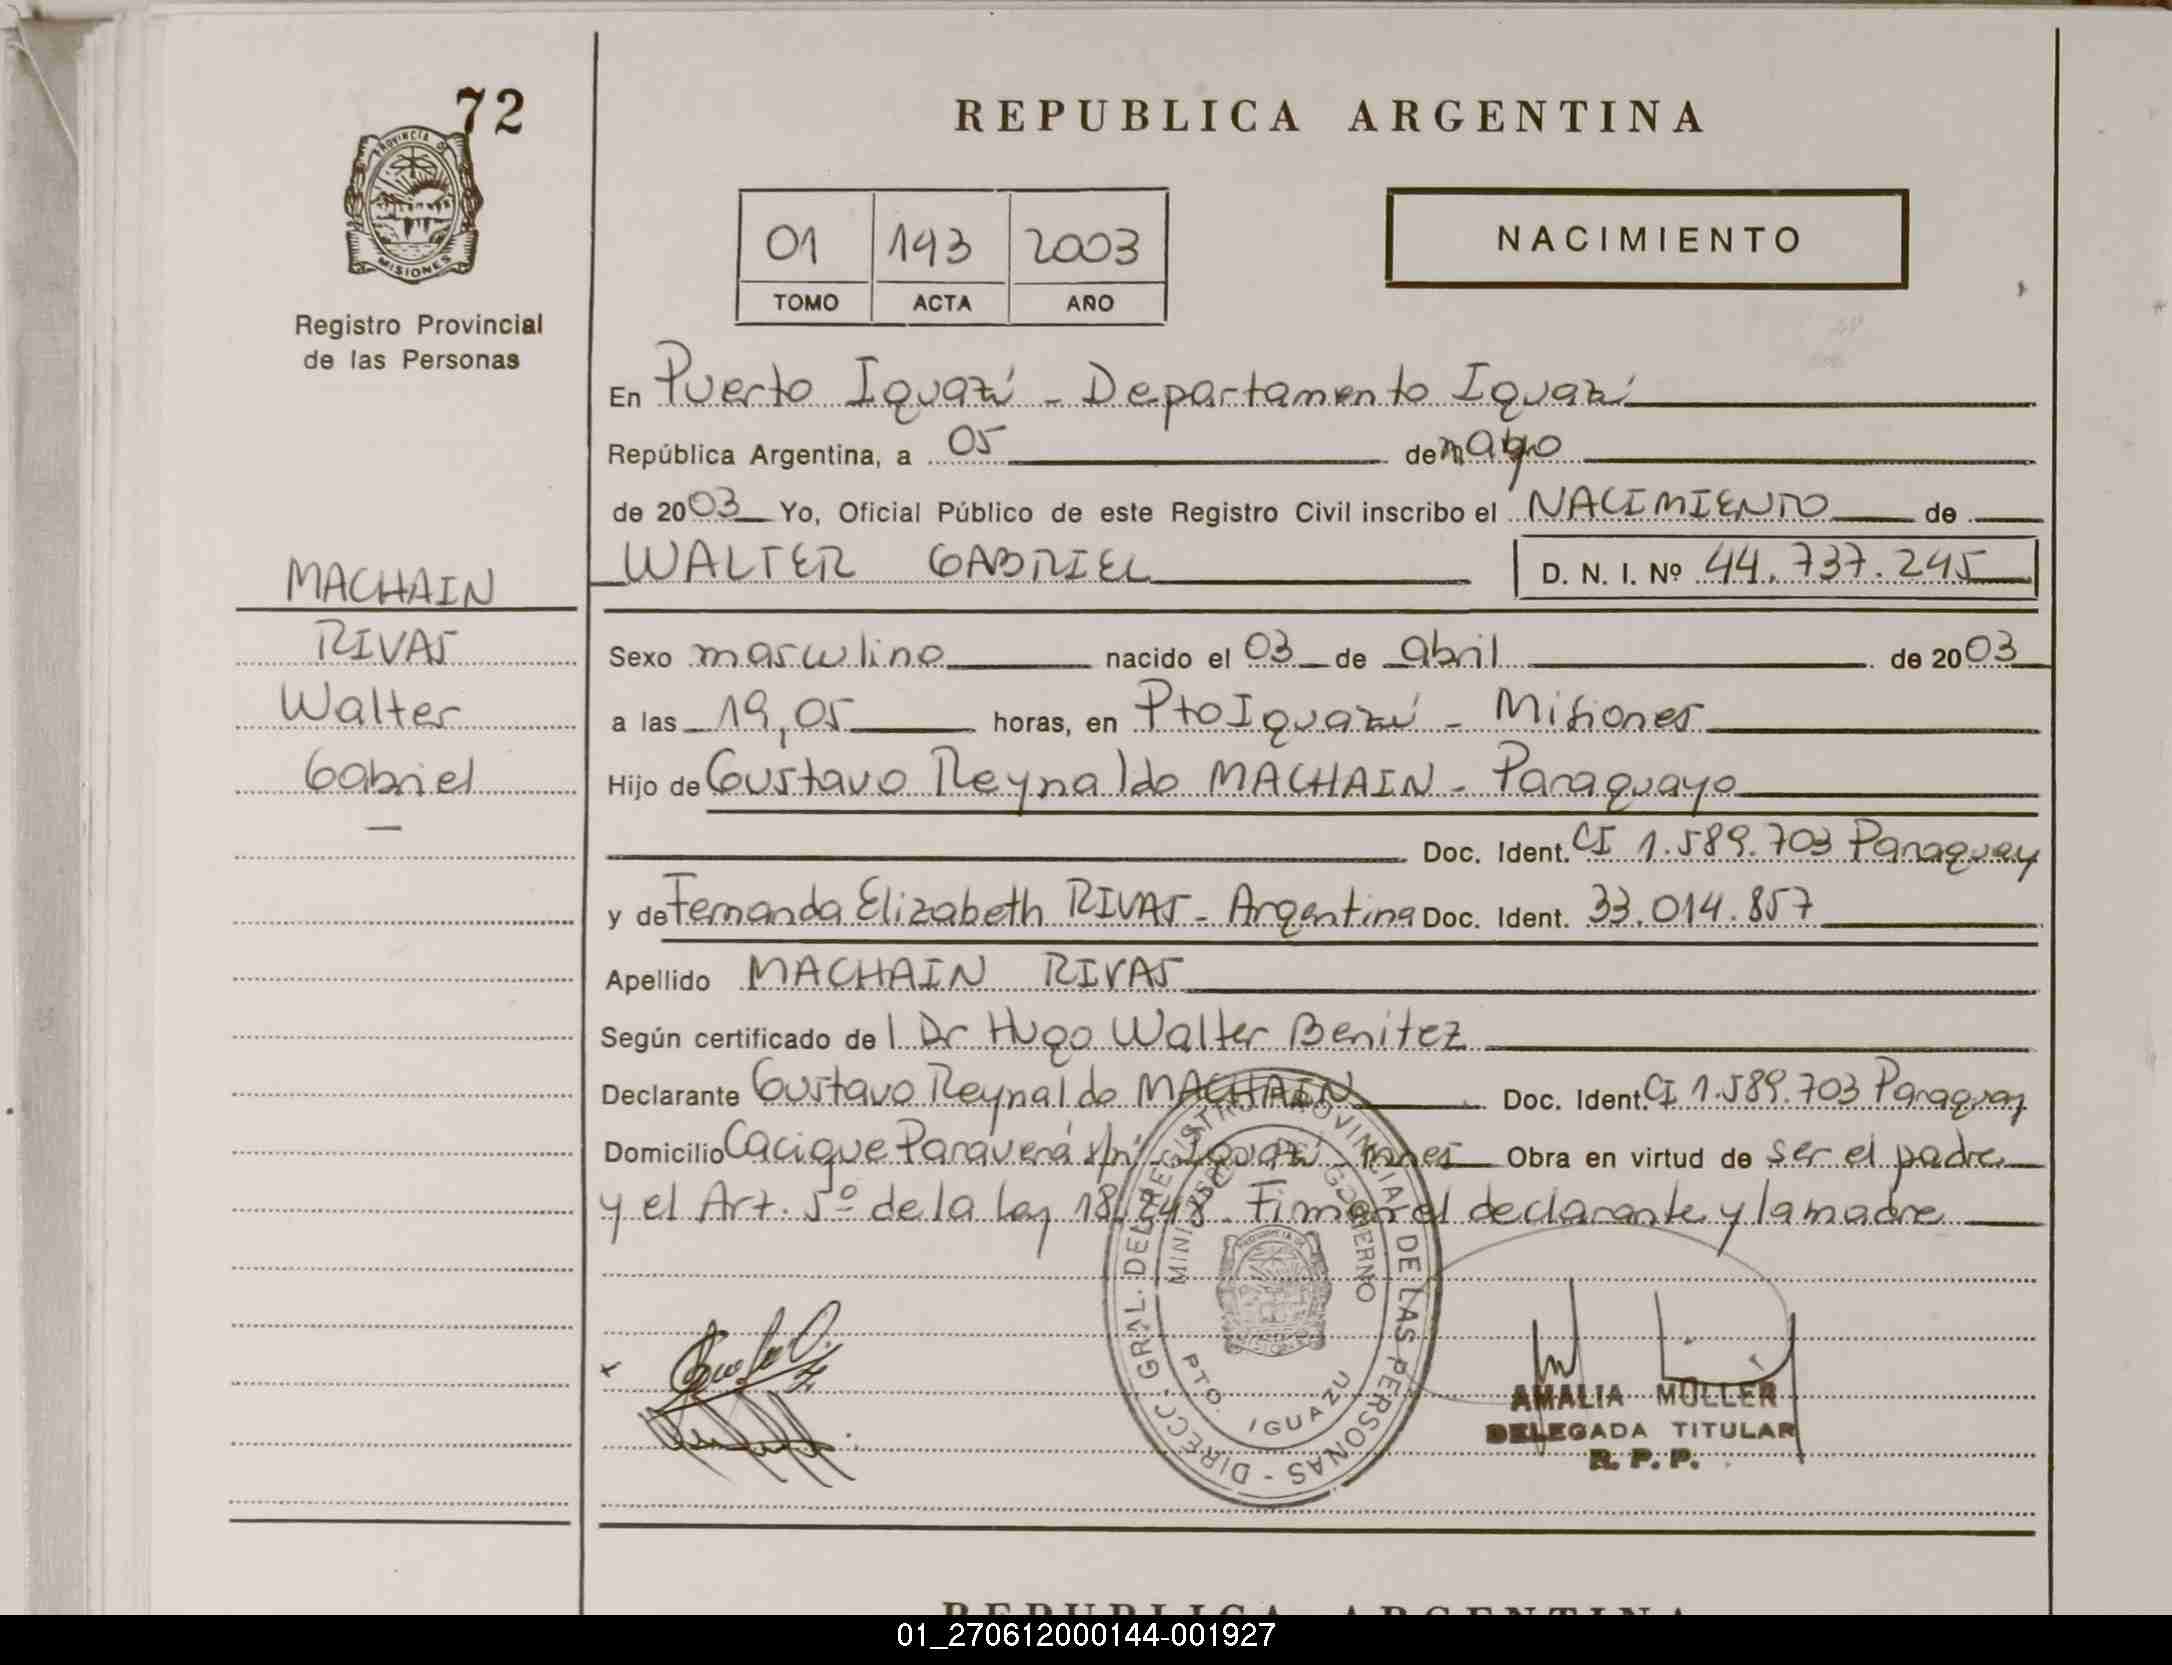 72
PROVINCIA DE
MISIONES
Registro Provincial
de las Personas
MACHAIN
RIVAS
Walter
Gabriel
REPUBLICA ARGENTINA
01 193 2003
TOMO ACTA AÑO
NACIMIENTO
En Puerto Iguazú - Departamento Iguazú
República Argentina, a 05 de mayo
de 2003 Yo, Oficial Público de este Registro Civil inscribo el NACIMIENTO de
WALTER GABRIEL D. N. I. Nº 44.737.245
Sexo masculino nacido el 03 de abril de 2003
a las 19,05 horas, en Pto Iguazú - Misiones
Hijo de Gustavo Reynaldo MACHAIN - Paraguayo
Doc. Ident. CI 1.589.703 Paraguay
y de Fernanda Elizabeth RIVAS - Argentina Doc. Ident. 33.014.857
Apellido MACHAIN RIVAS
Según certificado del Dr Hugo Walter Benitez
Declarante Gustavo Reynaldo MACHAIN Doc. Ident. CI 1.589.703 Paraguay
Domicilio Cacique Paraverá s/nº Iguazú mnes Obra en virtud de ser el padre
y el Art. 5º de la ley 18.248. Firman el declarante y la madre
DIRECC. GRAL. DEL REGISTRO PROVINCIAL DE LAS PERSONAS -
MINISTERIO DE GOBIERNO
PTO. IGUAZU
AMALIA MULLER
DELEGADA TITULAR
R. P. P.
REPUBLICA ARGENTINA
01_270612000144-001927